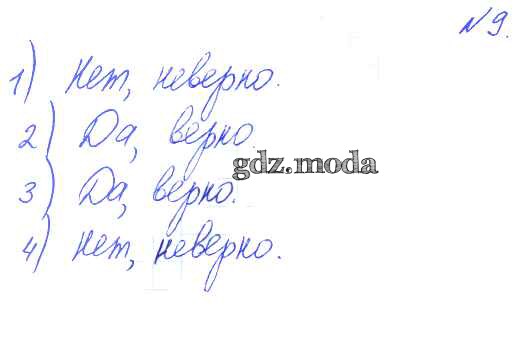 №9.
1) Нет, неверно.
2) Да, верно.
gdz.moda
3) Да, верно.
4) Нет, неверно.